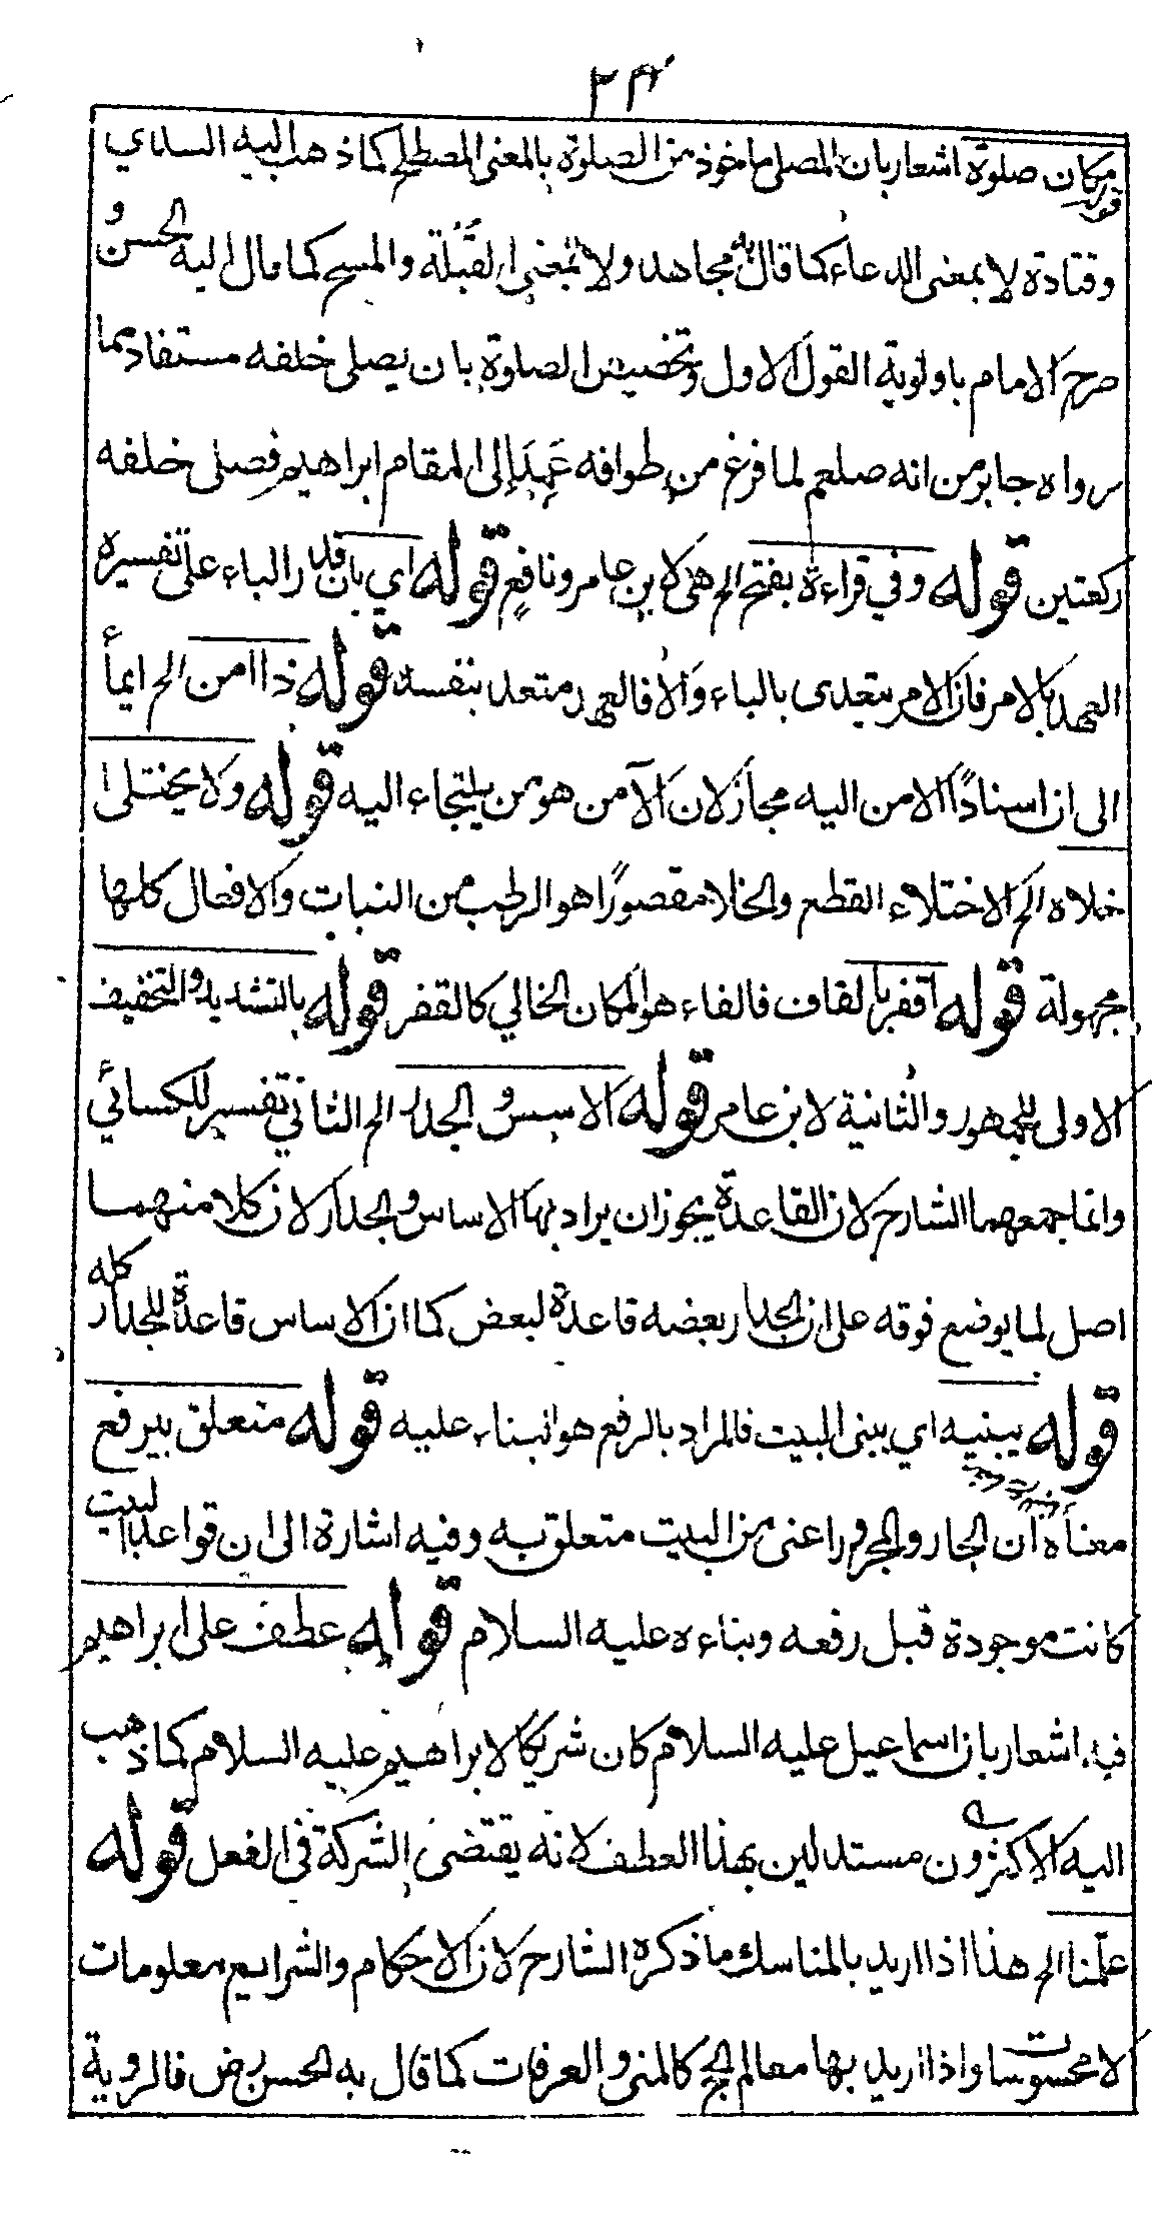 قوله مكان صلوة اشعار بان المصلى ماخوذ من الصلوة بالمعنى المصطلح كما ذهب اليه السدي
وقتادة لا بمعنى الدعاء كما قال به مجاهد ولا بمعنى القبلة والمسح كما مال اليه الحسن و
صرح الامام باولوية القول الاول وتخصيص الصلوة بان يصلى خلفه مستفاد مما
رواه جابر من انه صلعم لما فرغ من طوافه عَمَدَ الى المقام ابراهيم فصلى خلفه
ركعتين قوله وفي قراءة بفتح الخ هى لابن عامر ونافع قوله اي بان قدر الباء على تفسيره
العهد بالامر فان الامر يتعدى بالباء والا فالعهد متعد بنفسه قوله ذا امن الخ ايماء
الى ان اسنادا الامن اليه مجاز لان الآمن هو من يلتجاء اليه قوله ولا يختلى
خلاه الخ الاختلاء القطع والخلا مقصورًا هو الرطب من النبات والافعال كلها
مجهولة قوله اقفر بالقاف فالفاء هو المكان الخالي كالقفر قوله بالتشديد والتخفيف
الاولى للجمهور والثانية لابن عامر قوله الاسس والجدر الخ الثاني تفسير للكسائي
وانما جمعهما الشارح لان القاعدة يجوز ان يراد بها الاساس والجدار لان كلا منهما
اصل لما يوضع فوقه على ان الجدار بعضه قاعدة لبعض كما ان الاساس قاعدة للجدار كله
قوله يبنيه اي يبنى البيت فالمراد بالرفع هو البناء عليه قوله متعلق بيرفع
معناه ان الجار والمجرور اعنى من البيت متعلق به وفيه اشارة الى ان قواعد البيت
كانت موجودة قبل رفعه وبناءه عليه السلام قوله عطف على ابراهيم
فيه اشعار بان اسماعيل عليه السلام كان شريكا لابراهيم عليه السلام كما ذهب
اليه الاكثرون مستدلين بهذا العطف لانه يقتضى الشركة في الفعل قوله
علّمنا الخ هذا اذا اريد بالمناسك ما ذكره الشارح لان الاحكام والشرايع معلومات
لا محسوسات واذا اريد بها معالم الحج كالمنى والعرفات كما قال به الحسن رض فالروية